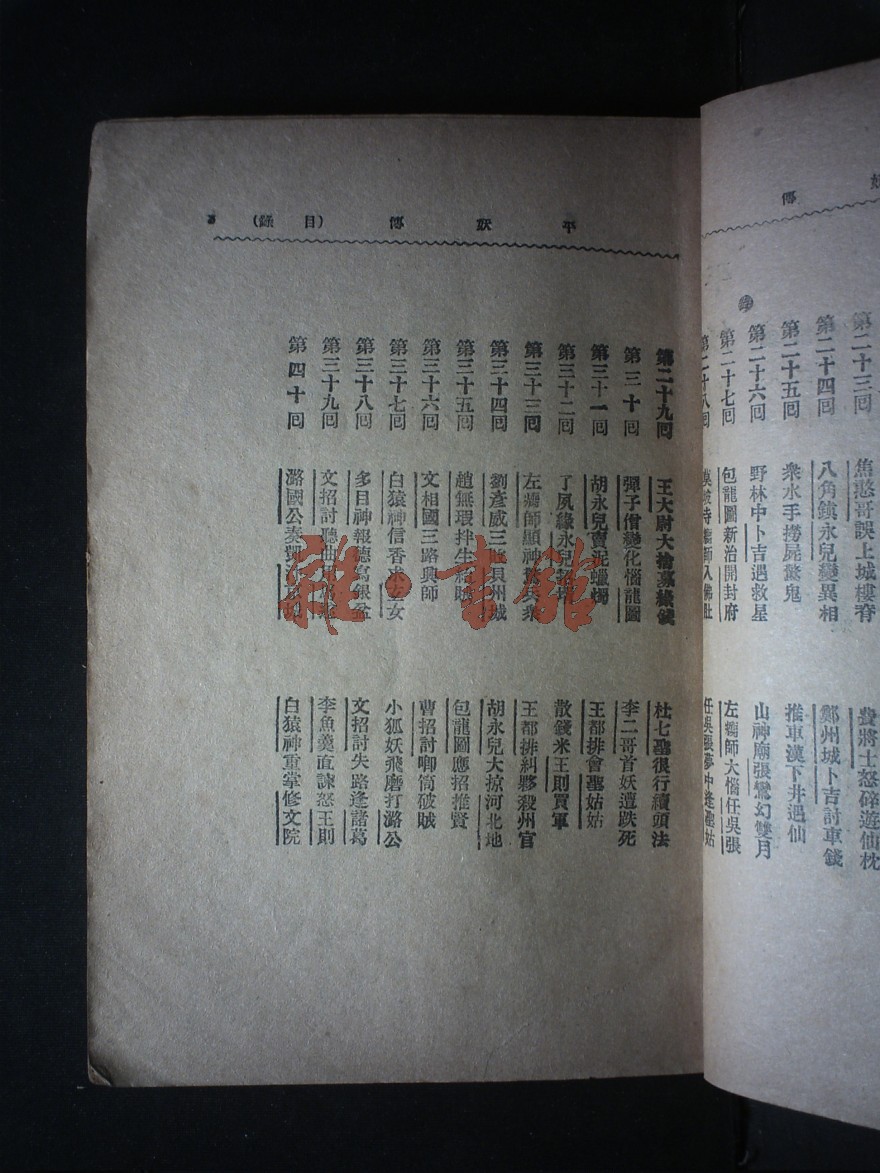 傳
第二十三回 焦憨哥誤上城樓脊 費將士怒碎遊仙枕
第二十四回 八角鎮永兒變異相 鄭州城卜吉討車錢
第二十五回 衆水手撈屍驚鬼 推車漢下井遇仙
第二十六回 野林中卜吉遇救星 山神廟張鸞幻雙月
第二十七回 包龍圖新治開封府 左瘸師大惱任吳張
第二十八回 莫坡寺瘸師入佛肚 任吳張夢中逢聖姑
平妖傳 (目錄)
第二十九回 王大尉大捨募緣錢 杜七聖很行續頭法
第三十回 彈子僧變化惱龍圖 李二哥首妖遭跌死
第三十一回 胡永兒賣泥蠟燭 王都排會聖姑姑
第三十二回 夙緣永兒 散錢米王則買軍
第三十三回 左瘸師顯神驚衆 王都排糾夥殺州官
第三十四回 劉彥威三敗貝州城 胡永兒大掠河北地
第三十五回 趙無瑕拌生紿賊 包龍圖應招推賢
第三十六回 文相國三路興師 曹招討唧筒破賊
第三十七回 白猿神信香求玄女 小狐妖飛磨打潞公
第三十八回 多目神報德寫銀盆 文招討失路逢諸葛
第三十九回 文招討聽曲用 李魚羹直諫怒王則
第四十回 潞國公奏凱 白猿神重掌修文院
雅·書館